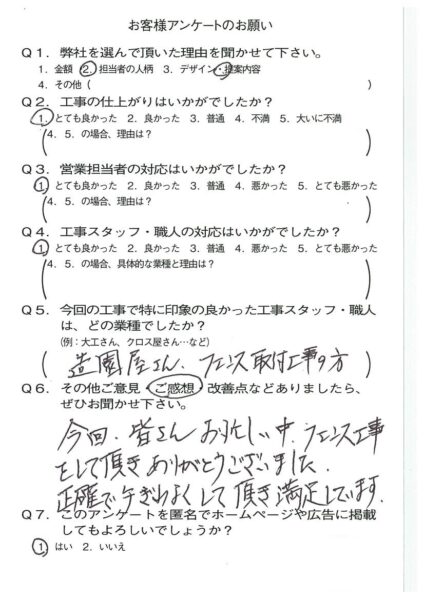 お客様アンケートのお願い
Q1. 弊社を選んで頂いた理由を聞かせて下さい。
1. 金額 2. 担当者の人柄 3. デザイン・提案内容
4. その他 ( )
Q2. 工事の仕上がりはいかがでしたか？
1. とても良かった 2. 良かった 3. 普通 4. 不満 5. 大いに不満
(4. 5. の場合、理由は？ )
Q3. 営業担当者の対応はいかがでしたか？
1 とても良かった 2. 良かった 3. 普通 4. 悪かった 5. とても悪かった
(4. 5. の場合、理由は？ )
Q4. 工事スタッフ・職人の対応はいかがでしたか？
1 とても良かった 2. 良かった 3. 普通 4. 悪かった 5. とても悪かった
(4. 5. の場合、具体的な業種と理由は？ )
Q5. 今回の工事で特に印象の良かった工事スタッフ・職人
は、どの業種でしたか？
(例：大工さん、クロス屋さん…など)
( 造園屋さん、フェンス取付工事の方 )
Q6. その他ご意見・ご感想・改善点などありましたら、
ぜひお聞かせ下さい。
今回、皆さんお忙しい中、フェンス工事
をして頂きありがとうございました。
正確で手ぎわよくして頂き満足しています。
Q7. このアンケートを匿名でホームページや広告に掲載
してもよろしいでしょうか？
1. はい 2. いいえ